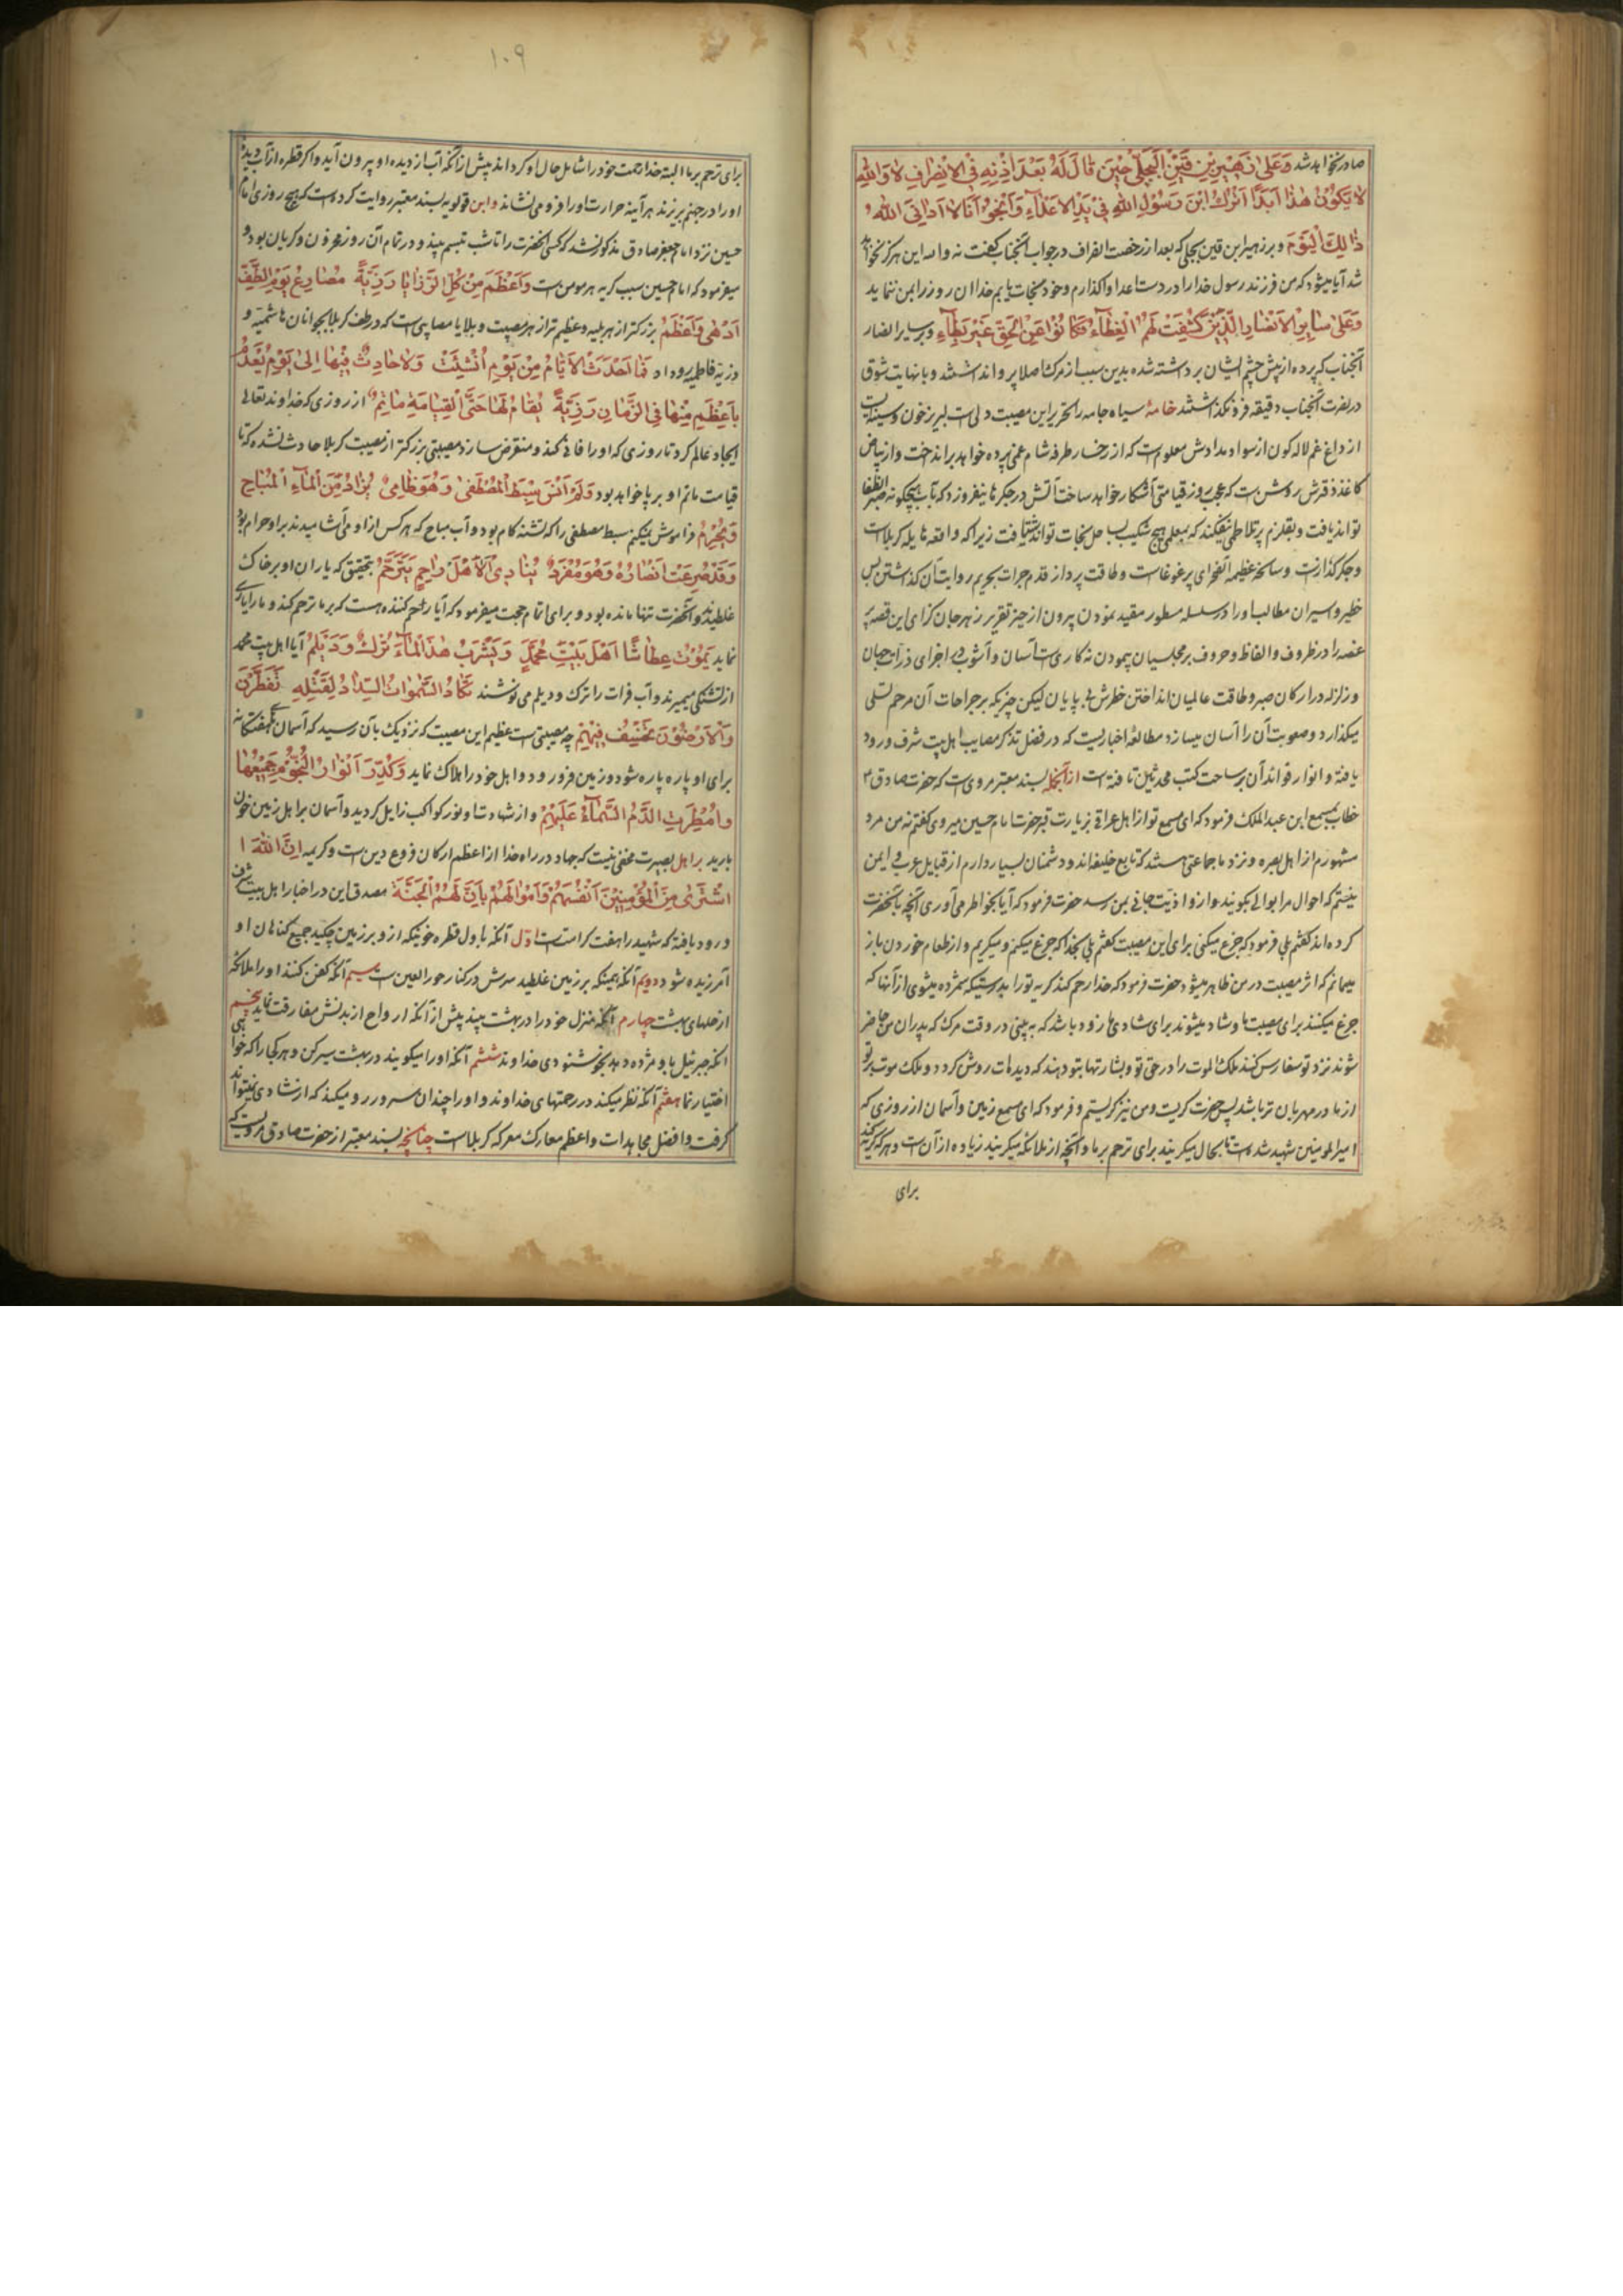 صادر نخواهد شد وَعَلیٰ زُهَیْرِ بْنِ قَیْنِ الْبَجَلِیِّ حینَ قالَ لَهُ بَعْدَ اِذْنِهِ فِی الاِنْصِرافِ لا وَاللهِ
لا یَکُوْنُ هٰذا اَبَدًا اَتْرُكُ ابْنَ رَسُوْلِ اللهِ فِیْ یَدِ الاَعْدَآءِ وَاَنْجُوْ اَنَا لا اَرانِیَ اللهُ
ذٰالِكَ الْیَوْمَ و بر زهیر ابن قین بجلی که بعد از رخصت انصراف در جواب آنجناب گفت نه والله این هرگز نخواهد
شد آیا میشود که من فرزند رسول خدا را در دست اعدا واگذارم و خود نجات یابم خدا آن روز را بمن ننماید
وَعَلیٰ سٰایِرِ الاَنْصٰارِ الَّذِیْنَ کُشِفَتْ لَهُمُ الْغِطٰآءُ فَکٰانُوْا عَنِ الْحَقِّ غَیْرَ بِطٰآءٍ و بر سایر انصار
آنجناب که پرده از پیش چشم ایشان برداشته شده بدین سبب از مرگ اصلا پروا نداشتند و با نهایت شوق
در نصرت آنجناب دقیقه فرو نگذاشتند خامهٔ سیاه جامه را تحریر این مصیبت دلی است لبریز خون و سینه ایست
از داغ غم لاله گون از سواد مدادش معلوم است که از رخسار طرفه شام غمی پرده خواهد برانداخت و از بیاض
کاغذ فرش روشن است که عجب روز قیامتی آشکار خواهد ساخت آتش در جگرها نیفروزد که بآب هیچگونه صبر انطفا
تواند یافت و بقلزم پر تلاطمی نیفکند که بمعلمی هیچ شکیب بساحل نجات تواند شتافت زیرا که واقعه هایله کربلاست
و جگر گذارنت و سانحه عظیمه آنصحرای پر غوغاست و طاقت پرداز قدم جرات بحریم روایت آن گذاشتن بس
خطیر و اسیران مطالب او را در سلسله سطور مقید نمودن بیرون از حیز تقریر زهر جان گزای این قصه پر
غصه را در ظروف الفاظ و حروف بر مجلسیان پیمودن نه کاریست آسان و آشوب در اجزای ذرات جهان
و زلزله در ارکان صبر و طاقت عالمیان انداختن خطرش بی پایان لیکن چیزیکه بر جراحات آن مرحم تسلی
میگذارد و صعوبت آن را آسان میسازد مطالعهٔ اخباریست که در فضل تذکر مصایب اهل بیت شرف ورود
یافته و انوار فواید آن بر ساحت کتب محدثین تافته است ازآنجمله بسند معتبر مرویست که حضرت صادق ۴
خطاب بمسمع ابن عبدالملک فرمود که ای مسمع تو از اهل عراقی بزیارت قبر حضرت امام حسین میروی گفتم نه من مرد
مشهورم از اهل بصره و نزد ما جماعتی هستند که تابع خلیفه اند و دشمنان بسیار دارم از قبایل عرب و ایمن
نیستم که احوال مرا بوالی بگویند و از و اذیت جانی بمن رسد حضرت فرمود که آیا بخواطر می آوری آنچه بآنحضرت
کرده اند گفتم بلی فرمود که جزع میکنی برای این مصیبت گفتم بلی بخدا که جزع میکنم و میگریم و از طعام خوردن باز
میمانم که اثر مصیبت در من ظاهر میشود حضرت فرمود که خدا رحم کند گریه تو را بدرستیکه شمرده میشوی از آنها که
جزع میکنند برای مصیبت ما و شاد میشوند برای شادی ما زود باشد که به بینی در وقت مرگ که پدران من حاضر
شوند نزد تو سفارس کنند ملک الموت را در حق تو و بشارتها بتو دهند که دیده ات روشن گردد و ملک موت بر تو
از مادر مهربان تر باشد پس حضرت گریست و من نیز گریستم و فرمود که ای مسمع زمین و آسمان از روزی که
امیرالمومنین شهید شده است تا بحال میگریند برای ترحم بر ما و آنچه از ملائکه میگریند زیاده از آن است و هر که گریه کند
برای
۱۰۹
برای ترحم بر ما البته خدا رحمت خود را شامل حال او گرداند پیش از آنکه آب از دیده او بیرون آید و اگر قطره از آب دیدهٔ
او را در جهنم بریزند هر آینه حرارت او را فرو می نشاند و ابن قولویه بسند معتبر روایت کرده است که هیچ روزی امام
حسین نزد امام جعفر صادق مذکور نشد که کسی آنحضرت را تا شب متبسم بیند و در تمام آن روز محزون و گریان بود و
میفرمود که امام حسین سبب گریه هر مومن است وَاَعْظَمَ مِنْ کُلِّ الرَّزٰایٰا رَزِیَّةً مَصٰارِعُ یَوْمِ الطَّفِّ
اَدْهیٰ وَاَعْظَمُ بزرگتر از هر بلیه و عظیم تر از هر مصیبت و بلایا مصایبی است که در طف کربلا بجوانان هاشمیه و
ذریه فاطمیه رو داد فَمٰا اَحْدَثَ الاَیّٰامُ مِنْ یَوْمِ اُنْشِئَتْ وَلاٰ حٰادِثٌ فِیْهٰا اِلیٰ یَوْمِ تُعْدَمُ
بِاَعْظَمَ مِنْهٰا فِی الزَّمٰانِ رَزِیَّةً یُقٰامُ لَهٰا حَتَّی الْقِیٰامَةِ مٰاتَمٌ از روزی که خداوند تعالی
ایجاد عالم کرد تا روزی که او را فانی کند و منقرض سازد مصیبتی بزرگتر از مصیبت کربلا حادث نشده که تا
قیامت ماتم او بر پا خواهد بود وَلَمْ اَنْسَ سِبْطَ الْمُصْطَفیٰ وَهُوَ ظٰامِیٌ یُزٰادُ مِنَ الْمٰآءِ الْمُبٰاحِ
وَیُحْرَمُ فراموش نمیکنم سبط مصطفی را که لب تشنه کام بود و آب مباح که هر کس از او می آشامیدند بر او حرام بود
وَقَدْ صُرِعَتْ اَنْصٰارُهُ وَهُوَ مُفْرَدٌ یُنٰادِیْ اَلاٰ هَلْ رٰاحِمٍ یَتَرَحَّمُ بتحقیق که یاران او بر خاک
غلطیدند و آنحضرت تنها مانده بود و برای اتمام حجت میفرمود که آیا رحم کننده هست که بر ما ترحم کند و ما را یاری
نماید یَمُوْتُ عِطٰاشًا اَهْلُ بَیْتِ مُحَمَّدٍ وَیَشْرَبُ هٰذَا الْمٰآءَ تُرْكٌ وَدَیْلَمُ آیا اهل بیت محمد
از تشنگی میمیرند و آب فرات را ترک و دیلم می نوشند تَکٰادُ السَّمٰوٰاتُ السِّدٰادُ لِقَتْلِهِ تَفَطَّرْنَ
وَالاَرَضُوْنَ تَخْسِفُ فِیْهِمْ چه مصیبتی است عظیم این مصیبت که نزدیک بآن رسید که آسمان هفتگانه
برای او پاره پاره شود و زمین فرو رود و اهل خود را هلاک نماید وَکُدِّرَ اَنْوٰارُ النُّجُوْمِ جَمِیْعُهٰا
وَاُمْطِرَتِ الدَّمَ السَّمٰآءُ عَلَیْهِمْ و از شهادت او نور کواکب زایل گردید و آسمان بر اهل زمین خون
بارید بر اهل بصیرت مخفی نیست که جهاد در راه خدا از اعظم ارکان فروع دین است و کریمه اِنَّ اللهَ
اشْتَریٰ مِنَ الْمُؤْمِنِیْنَ اَنْفُسَهُمْ وَاَمْوٰالَهُمْ بِاَنَّ لَهُمُ الْجَنَّةَ مصدق این در اخبار اهل بیت شرف
ورود یافته که شهید را هفت کرامت است اول آنکه باول قطره خونیکه از و بر زمین چکید جمیع گناهان او
آمرزیده شود دویم آنکه همینکه بر زمین غلطید سرش در کنار حورالعین است سیم آنکه کفن کنند او را ملائکه
از حلهای بهشت چهارم آنکه منزل خود را در بهشت بیند پیش از آنکه ارواح از بدنش مفارقت نماید پنجم
آنکه جبرئیل باو مژده دهد بخوشنودی خداوند ششم آنکه او را میگویند در بهشت سیر کن و هر کجا را که خواهی
اختیار نما هفتم آنکه نظر میکند در رحمتهای خداوند و او را چندان سرور رو میکند که از شادی نمیتواند
گرفت و افضل مجاهدات و اعظم معارک معرکه کربلاست چنانچه بسند معتبر از حضرت صادق مرویست که